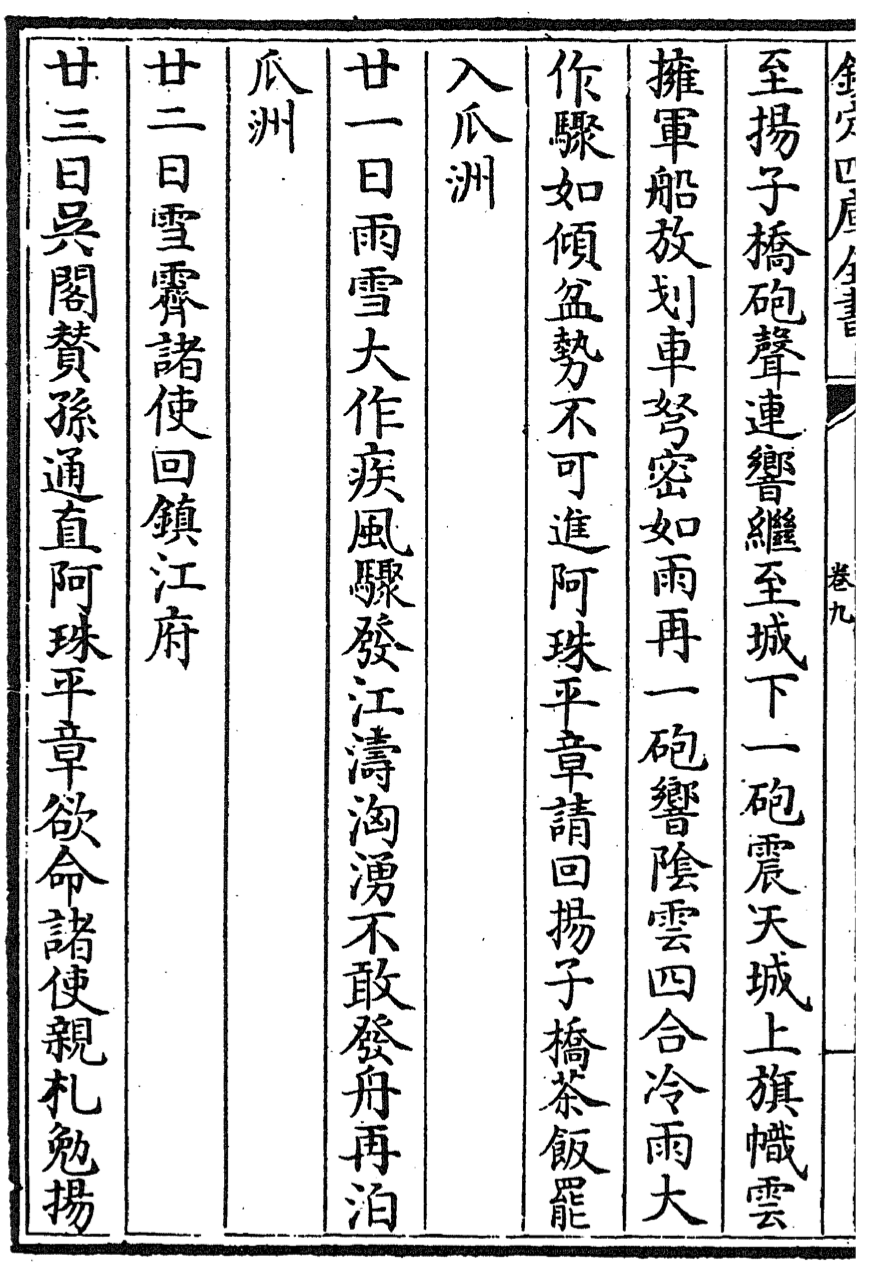 欽定四庫全書
卷九
至揚子橋砲聲連響繼至城下一砲震天城上旗幟雲
擁軍船放划車弩密如雨再一砲響陰雲四合冷雨大
作驟如傾盆勢不可進阿珠平章請回揚子橋茶飯罷
入瓜洲
廿一日雨雪大作疾風驟發江濤洶湧不敢發舟再泊
瓜洲
廿二日雪霽諸使回鎮江府
廿三日吳閣贊孫通直阿珠平章欲命諸使親札勉揚